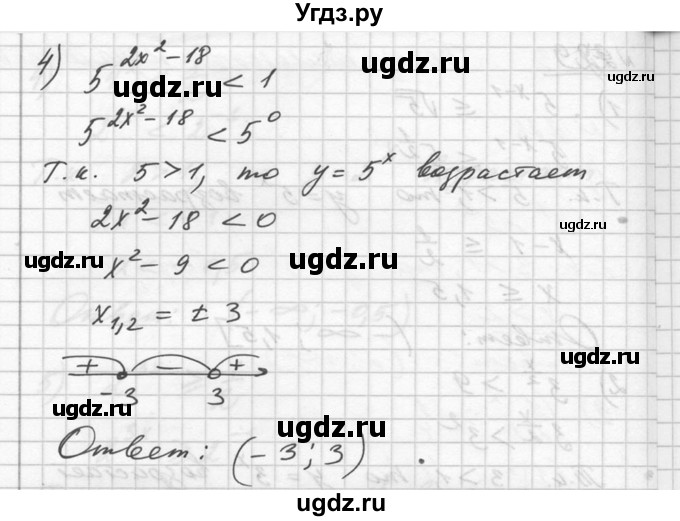 Угдз.ру
4) 5^{2x² - 18} < 1
5^{2x² - 18} < 5^0
Т.к. 5 > 1, то y = 5^x возрастает
2x² - 18 < 0
x² - 9 < 0
x_{1,2} = ± 3
+ − +
-3 3
Ответ: (-3; 3).
ugdz.ru
ugdz.ru
ugdz.ru
ugdz.ru
ugdz.ru
ugdz.ru
ugdz.ru
ugdz.ru
ugdz.ru
ugdz.ru
ugdz.ru
ugdz.ru